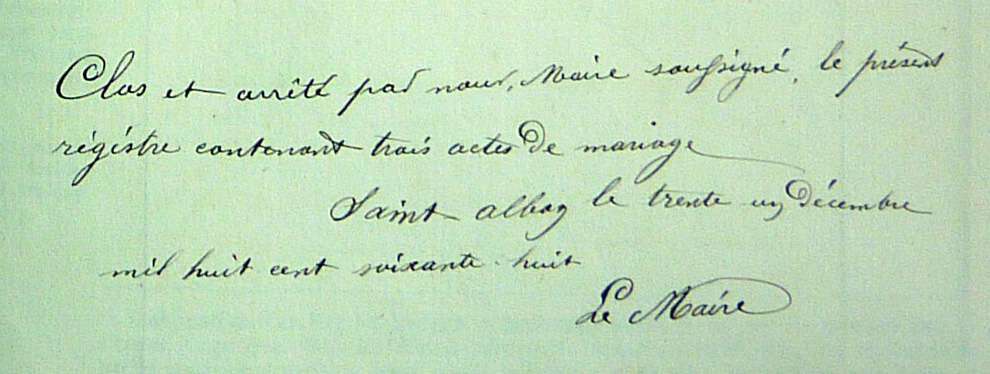 Clos et arrêté par nous, Maire soussigné, le présent
régistre contenant trois actes de mariage
Saint alban le trente un décembre
mil huit cent soixante-huit
Le Maire